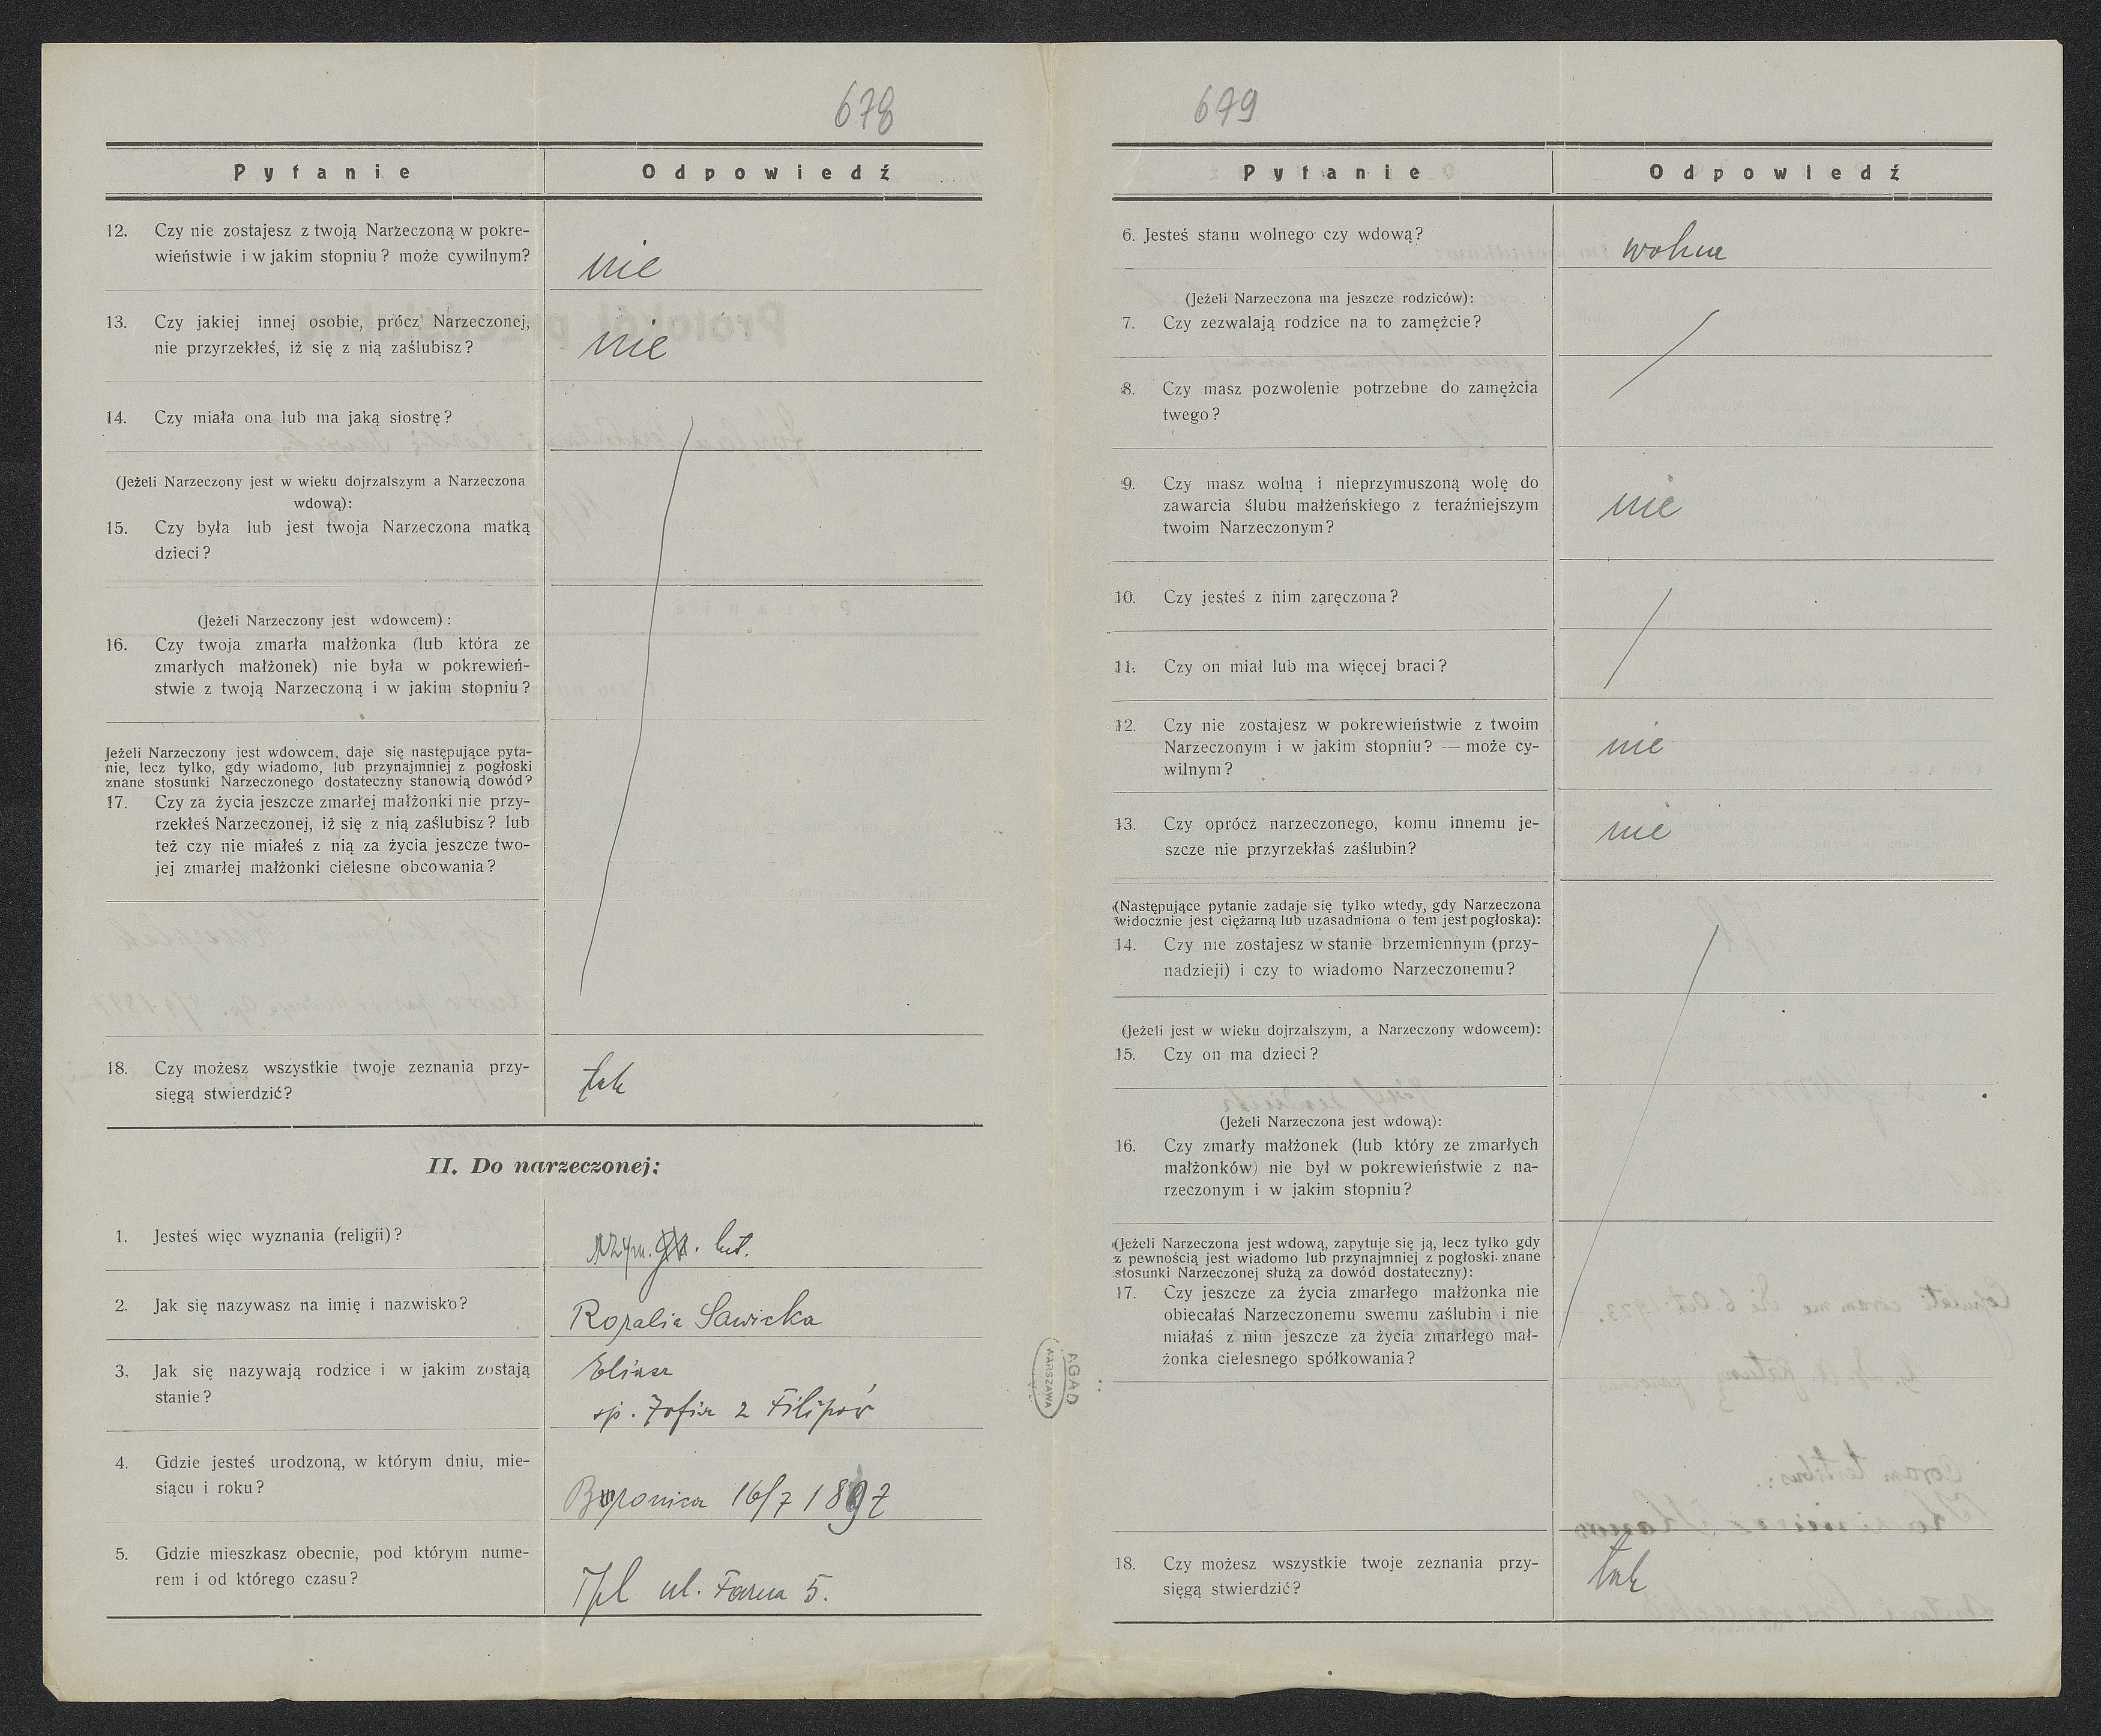 678
Pytanie
Odpowiedź
12. Czy nie zostajesz z twoją Narzeczoną w pokre-
wieństwie i w jakim stopniu? może cywilnym?
nie
13. Czy jakiej innej osobie, prócz Narzeczonej,
nie przyrzekłeś, iż się z nią zaślubisz?
nie
14. Czy miała ona lub ma jaką siostrę?
(Jeżeli Narzeczony jest w wieku dojrzalszym a Narzeczona
wdową):
15. Czy była lub jest twoja Narzeczona matką
dzieci?
(Jeżeli Narzeczony jest wdowcem):
16. Czy twoja zmarła małżonka (lub która ze
zmarłych małżonek) nie była w pokrewień-
stwie z twoją Narzeczoną i w jakim stopniu?
Jeżeli Narzeczony jest wdowcem, daje się następujące pyta-
nie, lecz tylko, gdy wiadomo, lub przynajmniej z pogłoski
znane stosunki Narzeczonego dostateczny stanowią dowód?
17. Czy za życia jeszcze zmarłej małżonki nie przy-
rzekłeś Narzeczonej, iż się z nią zaślubisz? lub
też czy nie miałeś z nią za życia jeszcze two-
jej zmarłej małżonki cielesne obcowania?
18. Czy możesz wszystkie twoje zeznania przy-
sięgą stwierdzić?
tak
II. Do narzeczonej:
1. Jesteś więc wyznania (religii)?
rzym. . łat.
2. Jak się nazywasz na imię i nazwisko?
Rozalia Sawicka
3. Jak się nazywają rodzice i w jakim zostają
stanie?
Eliasz
sp. Zofia z Filipów
4. Gdzie jesteś urodzoną, w którym dniu, mie-
siącu i roku?
16/7 1897
5. Gdzie mieszkasz obecnie, pod którym nume-
rem i od którego czasu?
Tpl ul. Farna 5.
679
Pytanie
Odpowiedź
6. Jesteś stanu wolnego czy wdową?
wolna
(Jeżeli Narzeczona ma jeszcze rodziców):
7. Czy zezwalają rodzice na to zamężcie?
8. Czy masz pozwolenie potrzebne do zamężcia
twego?
9. Czy masz wolną i nieprzymuszoną wolę do
zawarcia ślubu małżeńskiego z teraźniejszym
twoim Narzeczonym?
nie
10. Czy jesteś z nim zaręczona?
11. Czy on miał lub ma więcej braci?
12. Czy nie zostajesz w pokrewieństwie z twoim
Narzeczonym i w jakim stopniu? — może cy-
wilnym?
nie
13. Czy oprócz narzeczonego, komu innemu je-
szcze nie przyrzekłaś zaślubin?
nie
(Następujące pytanie zadaje się tylko wtedy, gdy Narzeczona
widocznie jest ciężarną lub uzasadniona o tem jest pogłoska):
14. Czy nie zostajesz w stanie brzemiennym (przy-
nadzieji) i czy to wiadomo Narzeczonemu?
(Jeżeli jest w wieku dojrzalszym, a Narzeczony wdowcem):
15. Czy on ma dzieci?
(Jeżeli Narzeczona jest wdową):
16. Czy zmarły małżonek (lub który ze zmarłych
małżonków) nie był w pokrewieństwie z na-
rzeczonym i w jakim stopniu?
(Jeżeli Narzeczona jest wdową, zapytuje się ją, lecz tylko gdy
z pewnością jest wiadomo lub przynajmniej z pogłoski znane
stosunki Narzeczonej służą za dowód dostateczny):
17. Czy jeszcze za życia zmarłego małżonka nie
obiecałaś Narzeczonemu swemu zaślubin i nie
miałaś z nim jeszcze za życia zmarłego mał-
żonka cielesnego spółkowania?
18. Czy możesz wszystkie twoje zeznania przy-
sięgą stwierdzić?
tak
AGAD
WARSZAWA